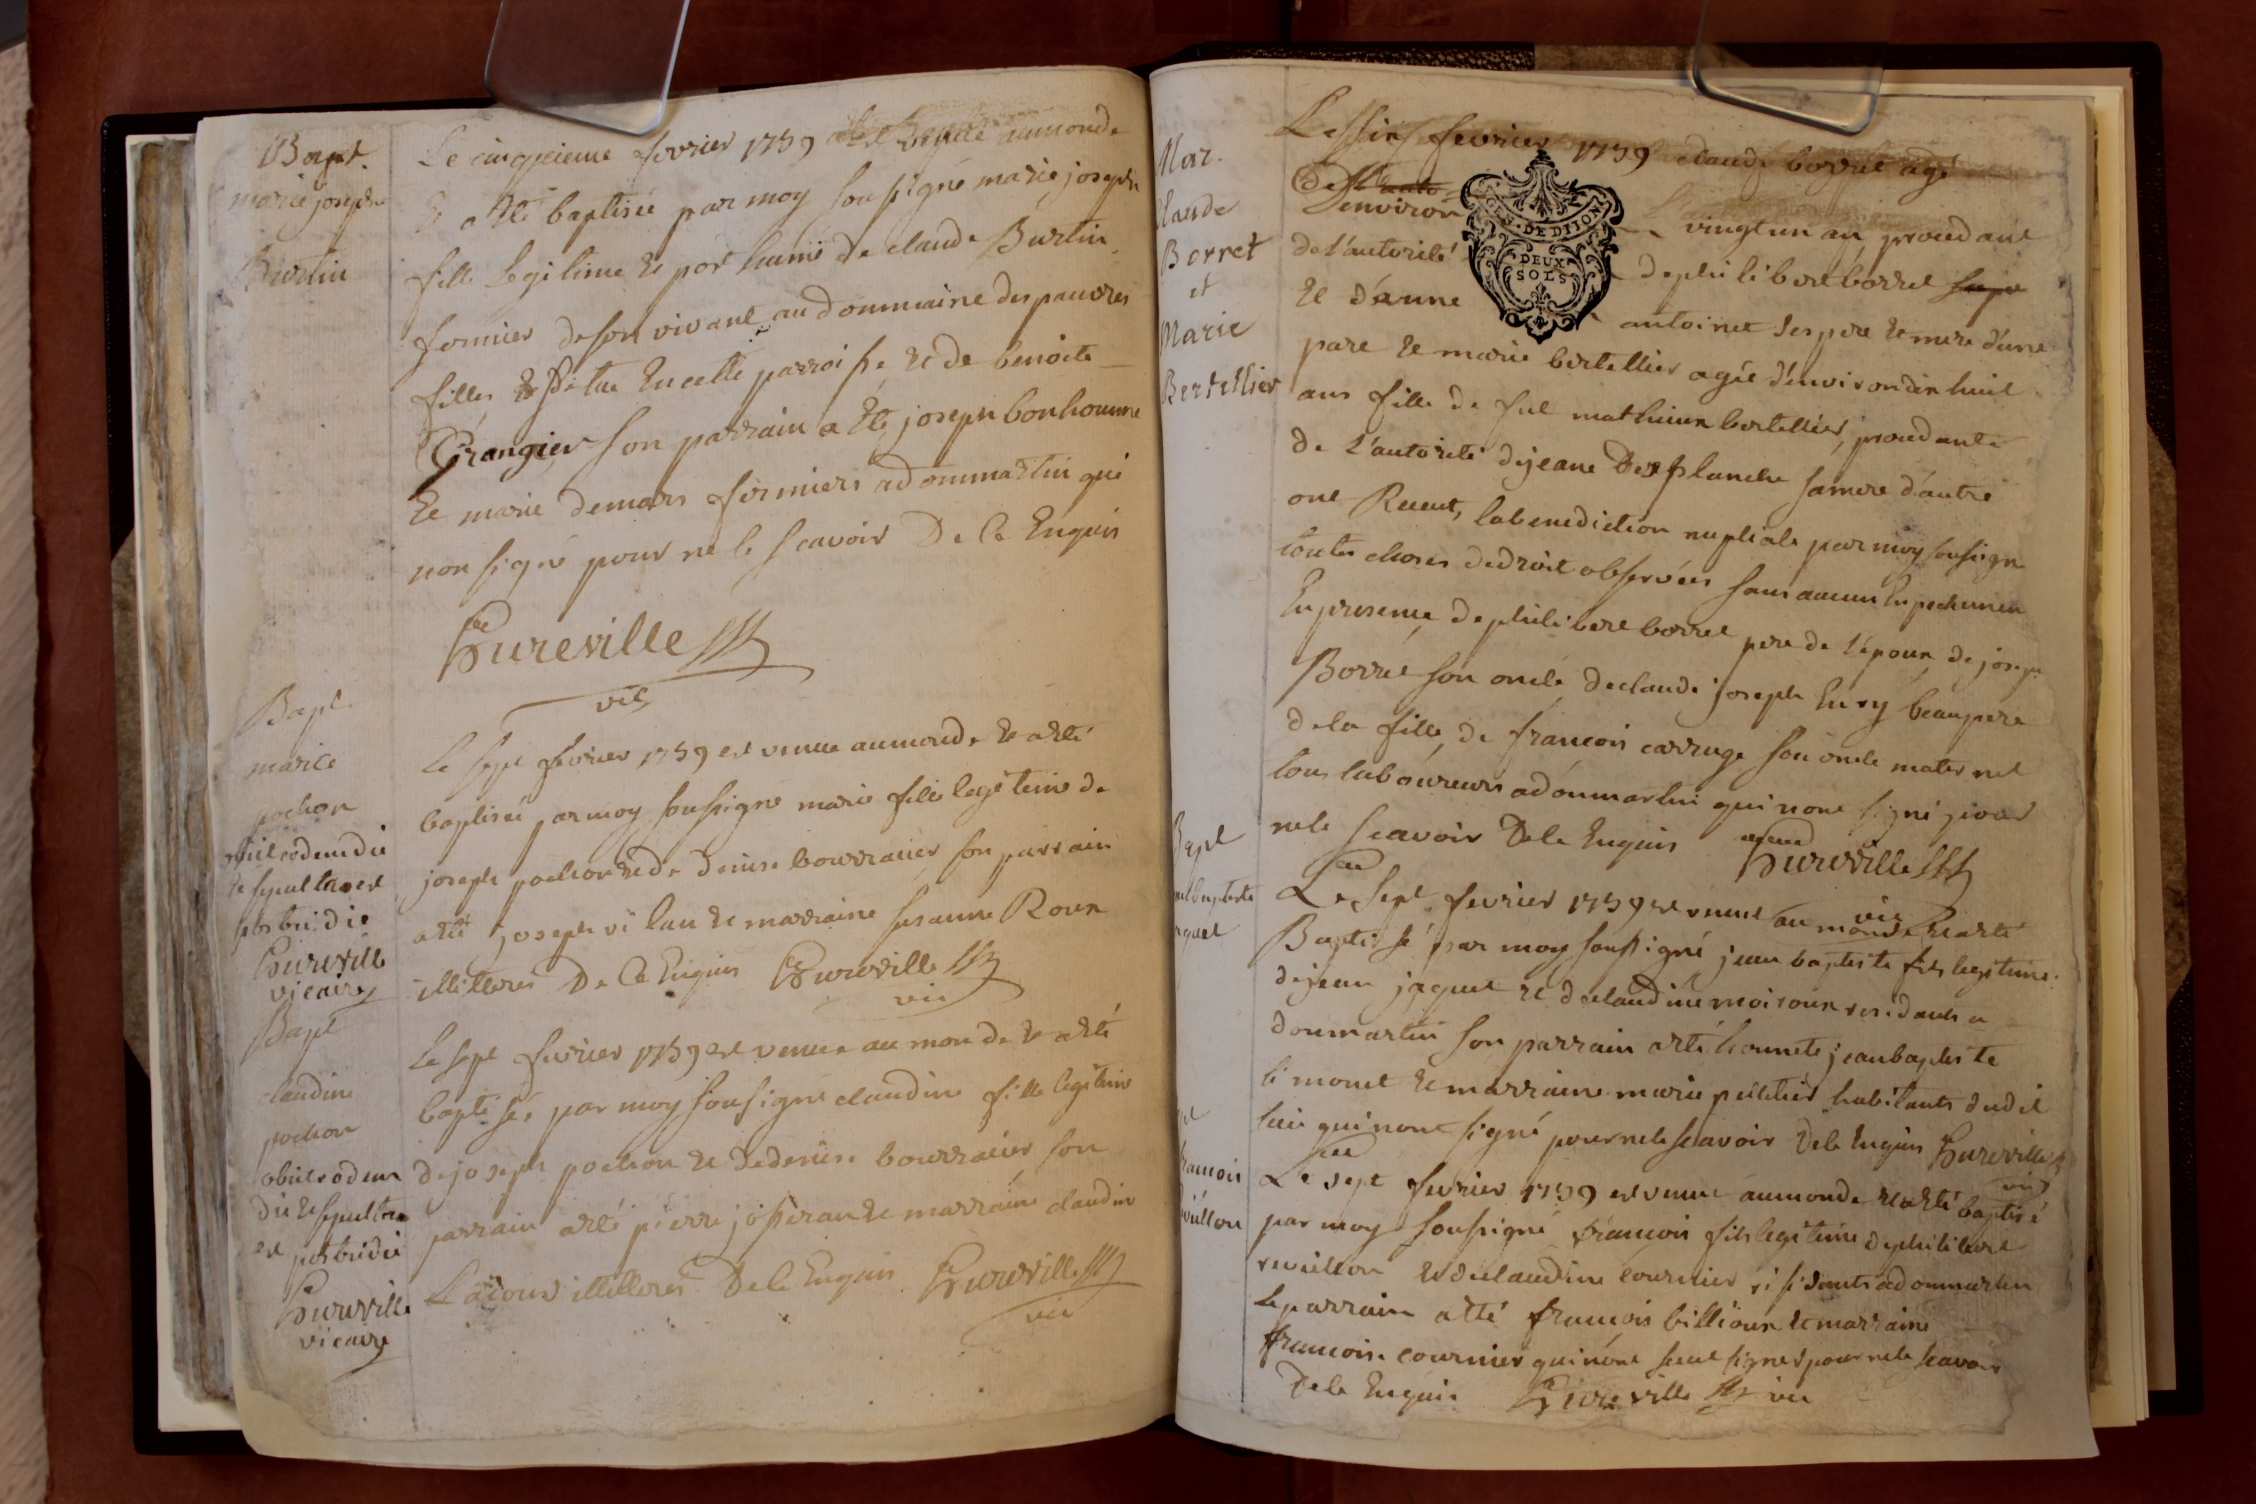 Bapt.
marie joseph
Burtin
Le cinqxieme fevrier 1759 est venüe aumonde
& a Eté baptisée par moy soussigné marie joseph
fille legitime & posthume de claude Burtin
fermier deson vivant audommaine des pauvres
filles & située Encette parroisse & de benoite
Grangier son parrain a Eté joseph bonhomme
& marie demars fermiers adommartin qui
non signé pour ne le scavoir De Ce Enquis
hureville
vic
Bapt
marie
pochon
obiit eodem die
& sepulta est
postridie
hureville
vicaire
Le sept fevrier 1759 est venue aumonde & a Eté
baptisée par moy soussigné marie fille legitime de
joseph pochon & de denise bourracier son parrain
a Eté joseph vilau & marraine susanne Roux
illitterés De Ce Enquis hureville
vic
Bapt
claudine
pochon
obiit eodem
die & sepulta
est postridie
hureville
vicaire
Le sept fevrier 1759 est venue au monde & a Eté
baptisée par moy soussigné claudine fille legitime
de joseph pochon & de denise bourracier son
parrain a Eté pierre josserand & marraine claudine
Lacour illitterés De Ce Enquis hureville
vic
Mar.
Claude
Borret
et
Marie
Bertellier
Le six fevrier 1759 claude borret agé
Denviron vingtun an procedant
de l'autorité de philibert borret
& d'anne antoinet ses pere & mere d'une
part & marie bertellier agée d'environ dix huit
ans fille de fut mathieu bertellier, procedante
de l'autorité de jeane Desplanche samere d'autre
ont Receut, labenediction nuptiale par moy soussigné
toutes choses dedroit observées sans aucun Enpechement
En presence de philibert borret pere de l'époux, de joseph
Borret son oncle, de claude joseph Envy beaupere
dela fille, de francois carruge son oncle maternel
tous laboureurs adommartin qui nont signé pour
nele scavoir De ce Enquis hureville
vic
Bapt
Le Sept fevrier 1759 est venut au monde & a Eté
Baptisé par moy soussigné jean baptiste fils legitime
de jean jaquet & de claudine moiroux residants a
dommartin son parrain a Eté honnete jean baptiste
limonet & marraine marie peletier habitants dudit
lieu qui nont signé pour nele scavoir De ce Enquis hureville
vic
francois
Le sept fevrier 1759 est venut aumonde & a Eté baptisé
par moy soussigné francois fils legitime de philibert
revillon & de claudine cournier residants adommartin
Le parrain a Eté francois billioux & marraine
francoise cournier qui nont sceut signer pour nele scavoir
De ce Enquis hureville vic
GEN. DE DIJON
DEUX
SOLS